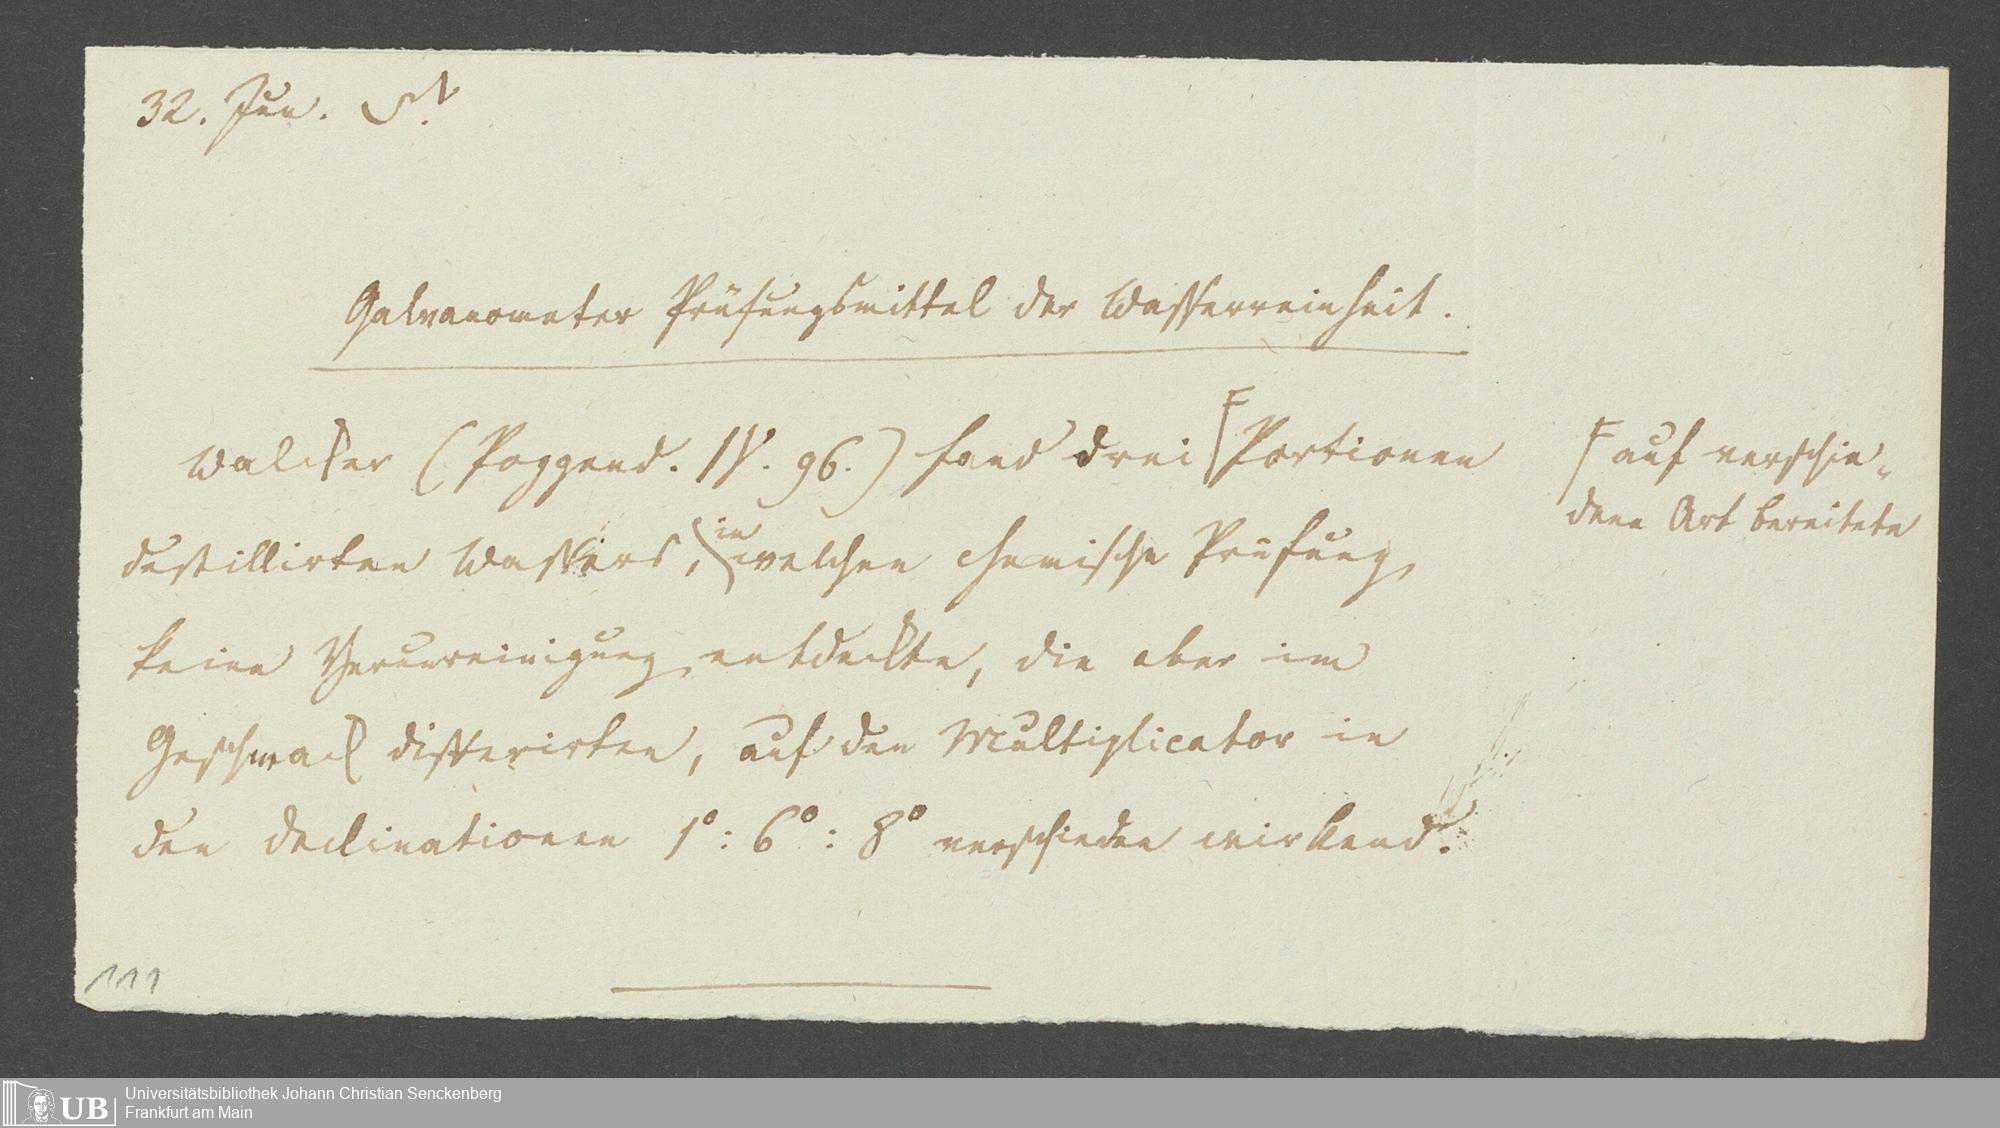 32. Jun.
Galvanometer Prüfungsmittel der Wasserreinheit.
Walcker (Poggend. IV. 96.) fand drei ꜔Portionen
destillirten Wassers, in welchen chemische Prüfung
keine Verunreinigung entdeckte, die aber im
Geschmack differirten, auf den Multiplicator in
den Declinationen 1°: 6°: 8° verschieden wirkend.
auf verschie-
dene Art bereitete
111
UB
Universitätsbibliothek Johann Christian Senckenberg
Frankfurt am Main